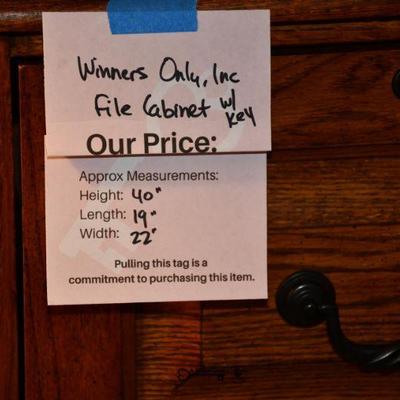 Winners Only, Inc
File Cabinet w/
Key
Our Price:
Approx Measurements:
Height: 40"
Length: 19"
Width: 22"
Pulling this tag is a
commitment to purchasing this item.